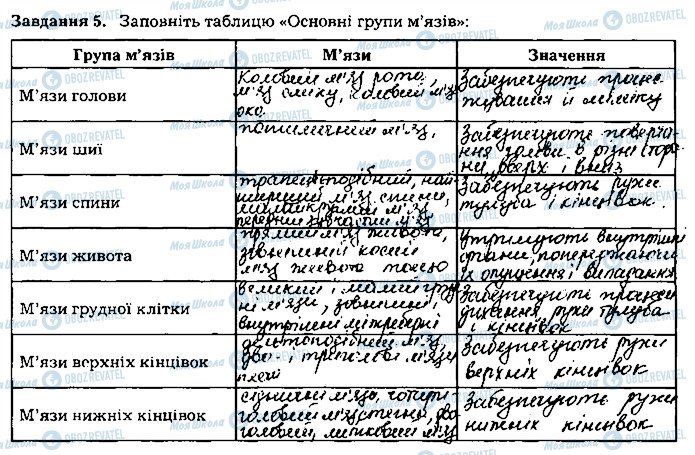 Завдання 5. Заповніть таблицю «Основні групи м'язів»:
Група м'язів
М'язи
Значення
М'язи голови
Коловий м'яз рота,
м'яз сміху, коловий м'яз
ока.
Забезпечують
й міміку
М'язи шиї
м'яз,
Забезпечують поверта-
ння голови в різні сторо-
ни, вверх і вниз
М'язи спини
трапецієподібний, най-
ширший м'яз спини,
м'яз,
м'яз
Забезпечують рухи
тулуба і кінцівок.
М'язи живота
прямий м'яз живота,
зовнішній косий
м'яз живота
утримують внутрішні
органи,
їх опущення і випадання
М'язи грудної клітки
великий і малий груд-
ні м'язи, зовнішні і
внутрішні міжреберні
Забезпечують
дихання, рухи тулуба
і кінцівок
М'язи верхніх кінцівок
дельтоподібний м'яз,
дво- і триголові м'язи
плеча
Забезпечують рухи
верхніх кінцівок
М'язи нижніх кінцівок
сідничні м'язи, чотири-
головий м'яз стегна, дво-
головий, литковий м'яз
Забезпечують рухи
нижніх кінцівок
МояШкола
OBOZREVATEL